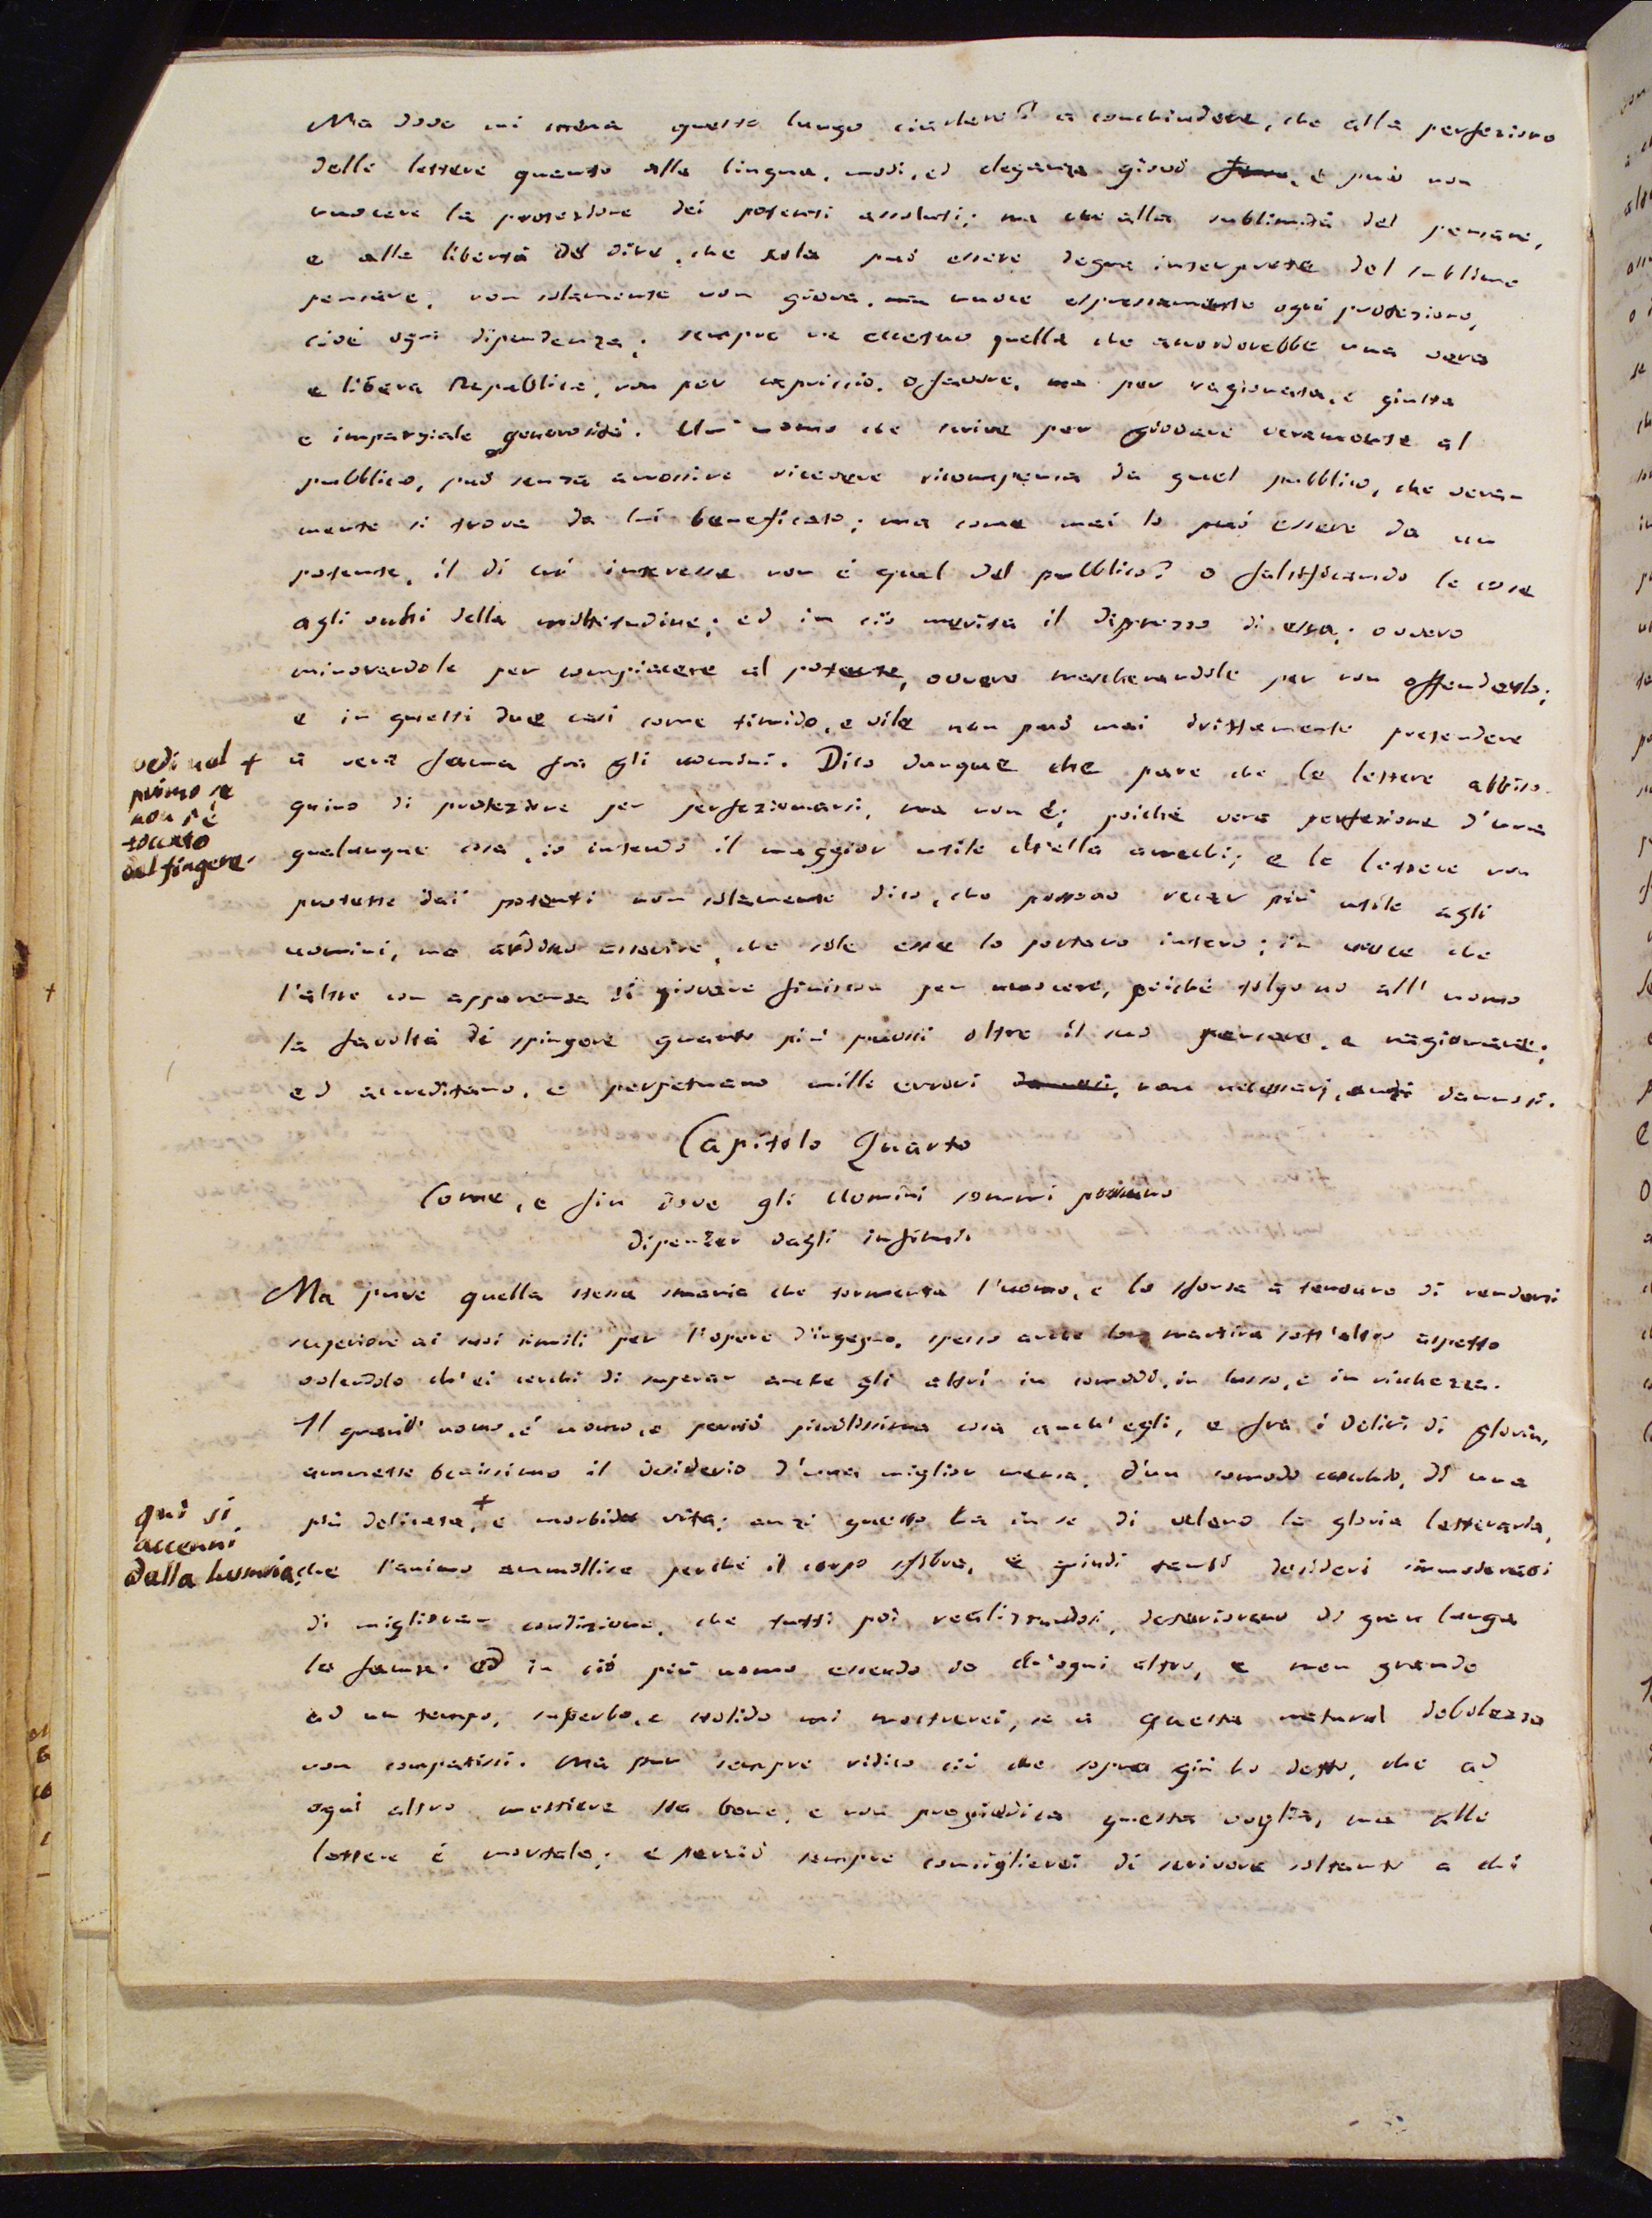 Ma dove mi mena questo lungo ciarlare? a conchiudere, che alla perfezione
delle lettere quanto alla lingua, modi, ed eleganza giovò e può non
nuocere la protezione dei potenti assoluti; ma che alla sublimità del pensare,
e alla libertà del dire, che sola può essere degna interprete del sublime
pensare, non solamente non giova, ma nuoce espressamente ogni protezione,
cioè ogni dipendenza; sempre ne eccettuo quella che accorderebbe una vera
e libera Repubblica, non per capriccio, o favore, ma per ragionata, e giusta
e imparziale generosità. Un' uomo che scrive per giovare veramente al
pubblico, può senza arrossire ricevere ricompensa da quel pubblico, che vera-
mente si trova da lui beneficato; ma come mai lo può essere da un
potente, il di cui interesse non è quel del pubblico? o falsificando le cose
agli occhi della moltitudine; ed in ciò merita il disprezzo di essa; ovvero
minorandole per compiacere al potente, ovvero mascherandole per non offenderlo;
e in questi due casi come timido, e vile non può mai drittamente pretendere
vedi nel +
primo se
non s'è
toccato
del fingere.
a vera fama fra gli uomini. Dico dunque che pare che le lettere abbiso-
gnino di protezione per perfezionarsi, ma non è; poiché vera perfezione d'una
qualunque cosa, io intendo il maggior utile ch'ella arrechi; e le lettere non
protette dai potenti non solamente dico, che possono recar più utile agli
uomini, ma ardisco asserire, che sole esse lo portano intero; in vece che
l'altre con apparenza di giovare finiscon per nuocere, poiché tolgono all' uomo
la facoltà di spingere quanto più puossi oltre il suo pensare, e ragionare;
ed accreditano, e perpetuano mille errori dannosi, non necessarj, anzi dannosi.
Capitolo Quarto
Come, e fin dove gli Uomini sommi possano
dipender dagli infimi.
Ma pure quella stessa smania che tormenta l'uomo, e lo sforza a tentare di rendersi
superiore ai suoi simili per l'opere d'ingegno, spesso anche lo martira sott'altro aspetto
volendo ch'ei cerchi di superar anche gli altri in comodo, in lusso, e in richezza.
Il grand' uomo, è uomo, e perciò picciolissima cosa anch'egli, e fra i deliri di gloria,
ammette benissimo il desiderio d'una miglior mensa, d'un comodo di una
qui si
accenni
della lussuria
più delicata,+ e morbida vita; anzi questo ha in se di veleno la gloria letteraria,
che l'animo ammollisce perché il corpo sfibra, e quindi tanti desideri immoderati
di migliorar condizione, che tutti poi realizzandosi, deteriorano di gran lunga
la fama. Ed in ciò più uomo essendo io ch'ogni altro, e men grande
ad un tempo, superbo, e stolido mi mostrerei, se a questa natural debolezza
non compatissi. Ma pur sempre ridico ciò che sopra già ho detto, che ad
ogni altro mestiere sta bene, e non pregiudica questa voglia, ma alle
lettere è mortale; e perciò sempre consiglierei di scrivere soltanto a chi